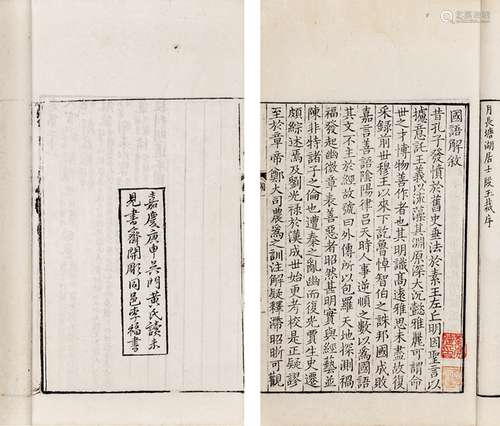 月長塘湖居士段玉裁序
國語解敘
昔孔子發憤於舊史垂法於素王左丘明因聖言以
攄意託王義以流藻其淵原深大沉懿雅麗可謂命
世之才博物善作者也其明識高遠雅思未盡故復
采錄前世穆王以來下訖魯悼智伯之誅邦國成敗
嘉言善語陰陽律呂天時人事逆順之數以爲國語
其文不主於經故號曰外傳所以包羅天地探測禍
福發起幽微章表善惡者昭然甚明實與經藝並
陳非特諸子之倫也遭秦之亂幽而復光賈生史遷
頗綜述焉及劉光祿於漢成世始更考校是正疑謬
至於章帝鄭大司農爲之訓注解疑釋滯昭晰可觀
嘉慶庚申吳門黃氏讀未
見書齋開雕同邑李福書